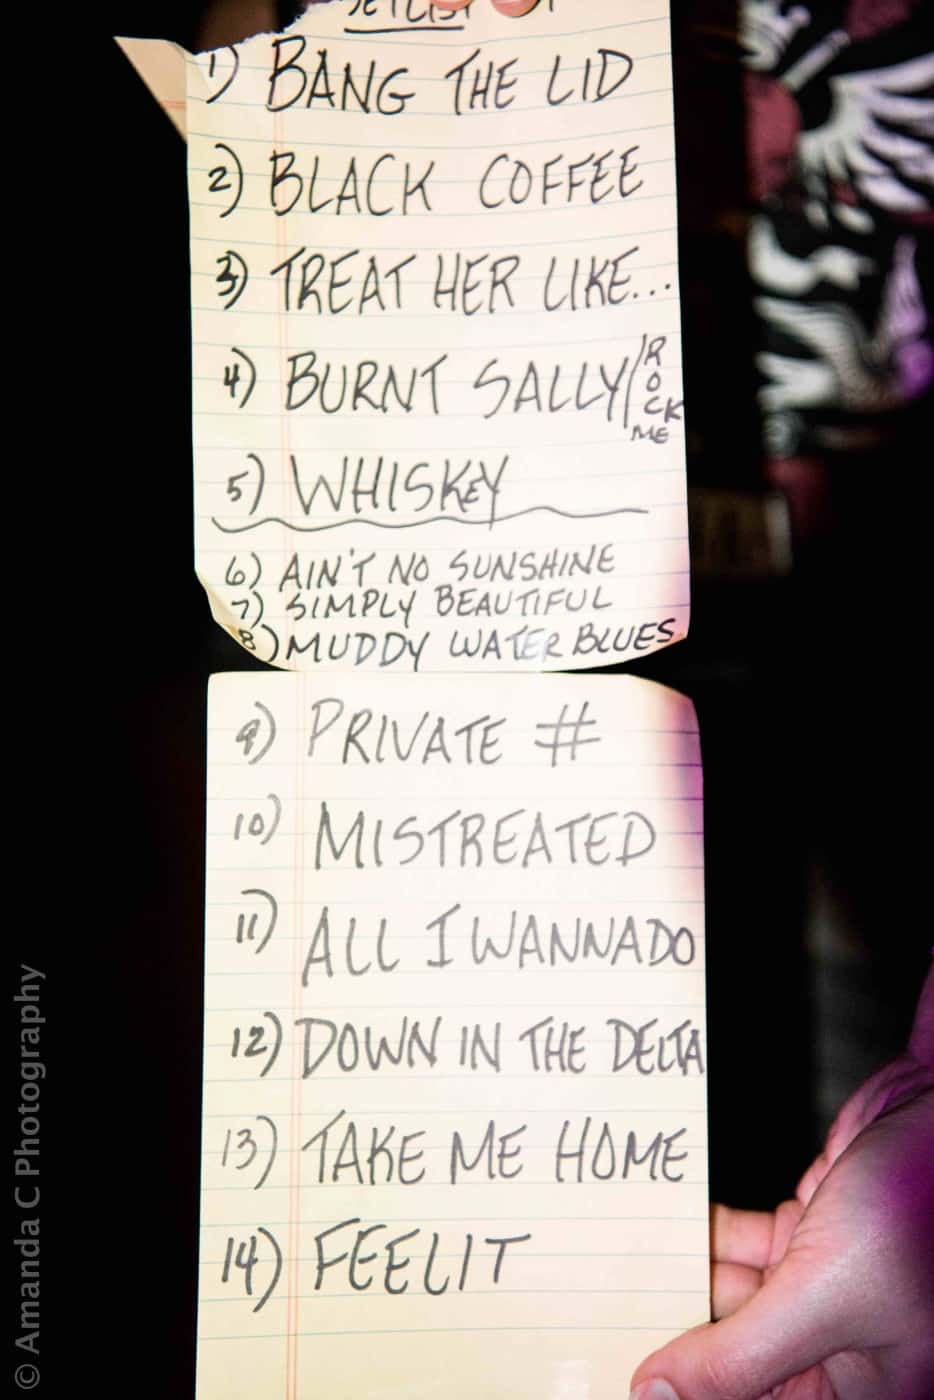 SETLIST
1) BANG THE LID
2) BLACK COFFEE
3) TREAT HER LIKE...
4) BURNT SALLY/ROCK ME
5) WHISKEY
6) AIN'T NO SUNSHINE
7) SIMPLY BEAUTIFUL
8) MUDDY WATER BLUES
9) PRIVATE #
10) MISTREATED
11) ALL I WANNA DO
12) DOWN IN THE DELTA
13) TAKE ME HOME
14) FEEL IT
© Amanda C Photography